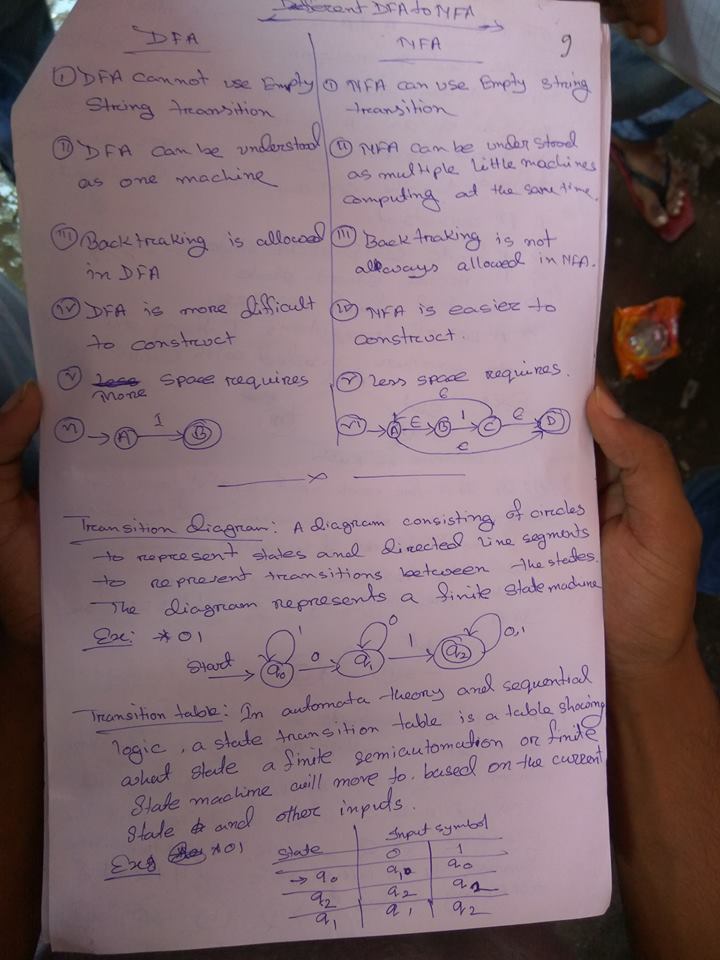 Different DFA to NFA
9
DFA
① DFA cannot use Empty
String transition
② DFA can be understood
as one machine
③ Backtraking is allowed
in DFA
④ DFA is more difficult
to construct
⑤ Less Space requires
more
→ A 1 B
NFA
① NFA can use Empty string
transition
② NFA can be understood
as multiple little machines
computing at the same time.
③ Backtraking is not
always allowed in NFA.
④ NFA is easier to
construct.
⑤ Less space requires.
ϵ
→ A ϵ B 1 C ϵ D
ϵ
Transition diagram: A diagram consisting of circles
to represent states and directed line segments
to represent transitions between the states.
The diagram represents a finite state machine
Ex: *01
1 0 0,1
Start q0 0 q1 1 q2
Transition table: In automata theory and sequential
logic, a state transition table is a table showing
what state a finite semiautomation or finite
State machine will move to. based on the current
state and other inputs.
Ex: *01
State Input symbol
0 1
→ q0 q1 q0
q2 q2 q2
q1 q1 q2